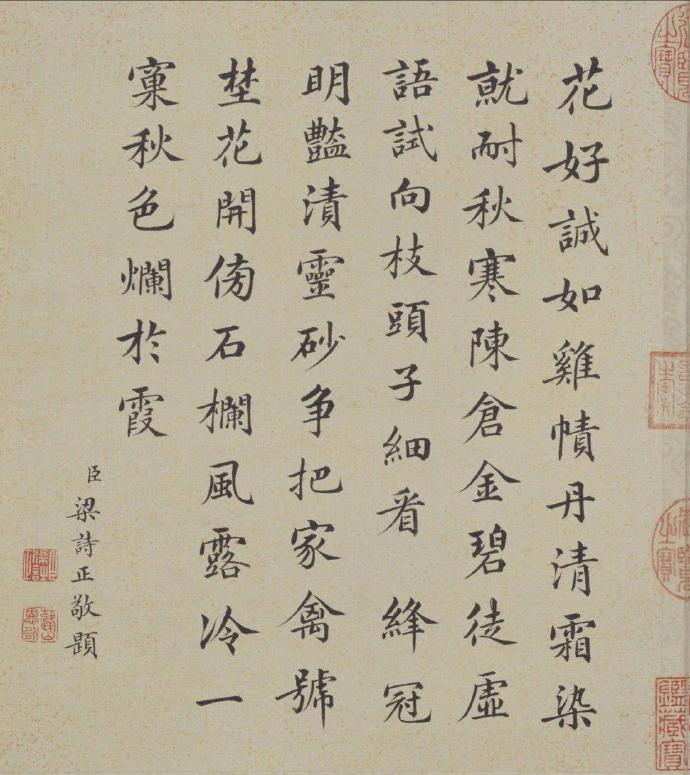 花好誠如雞幘丹清霜染
就耐秋寒陳倉金碧徒虛
語試向枝頭子細看　絳冠
明豔漬靈砂争把家禽號
埜花開傍石欄風露冷一
窠秋色爛於霞
臣梁詩正敬題